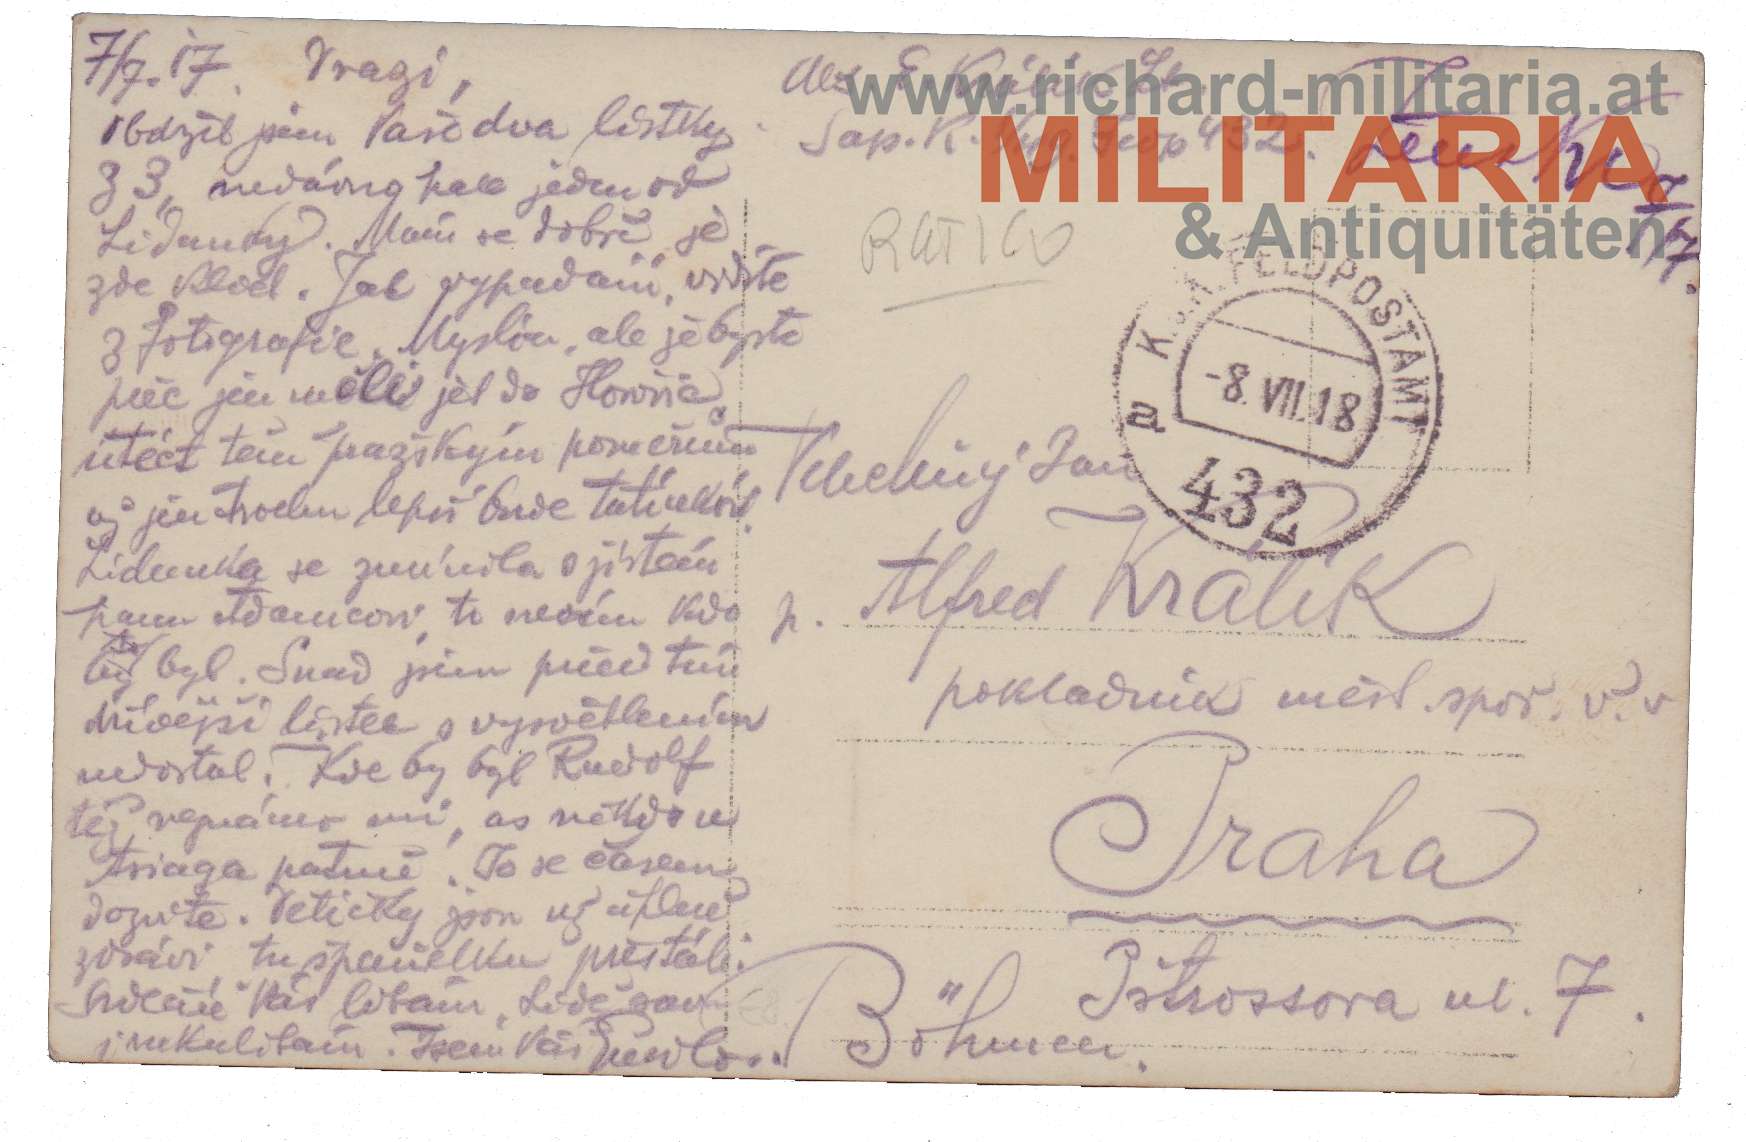 7/7. 17. Drazí,
obdržel jsem Vaše dva lístky
z 3., nedávno pak jeden od
Lidunky. Mám se dobře, je
zde klid. Jak vypadám, vidíte
z fotografie. Myslím, ale že byste
přec jen měli jet do Hořovic
utéct těm pražským poměrům
až jen trochu lepší bude tatínkovi.
Lidunka se zmínila o jistém
panu Adamcovi, to nevím kdo
by byl. Snad jsem před tím
dřívější lístek s vysvětlením
nedostal. Kde by byl Rudolf
též neznámo mi, as někdo u
patrně. To se časem
dozvíte. Tetičky jsou už úplně
zdrávi, tu španělku přestáli.
Srdečně Vás líbám, Lidě pak
ruku líbám. Jsem Váš
Abs. E. Králík Lt.
Sap. K. Feldp. 432.
www.richard-militaria.at
MILITARIA
& Antiquitäten
RATICO
K.u.K. FELDPOSTAMT
a
-8.VII.18
432
Velectěný Pan
p. Alfred Králík
pokladník měst. spoř. v. v
Praha
Pštrossova ul. 7.
Böhmen.